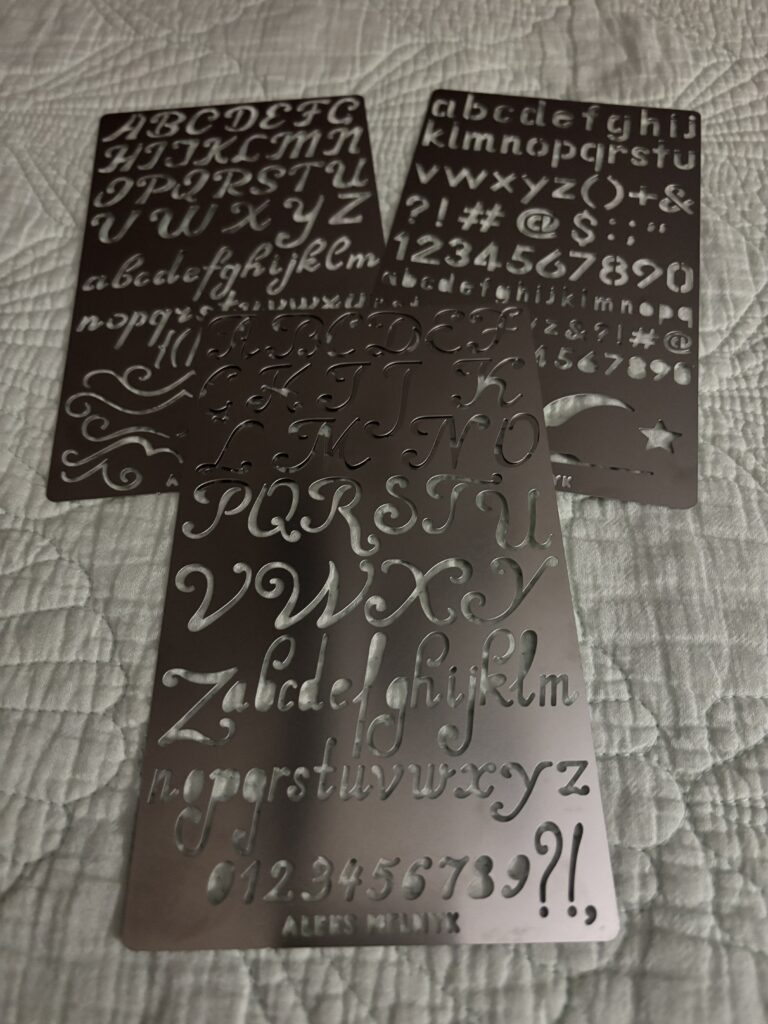 ABCDEFG
HIJKLMN
OPQRSTU
VWXYZ
abcdefghijklm
nopqrstuvwxyz
abcdefghij
klmnopqrstu
vwxyz()+&
?!#@$:;“
1234567890
abcdefghijklmnopq
yz&?!#@
4567890
ABCDEF
GHIJK
LMNO
PQRSTU
VWXY
Zabcdefghijklm
nopqrstuvwxyz
0123456789?!,
ALEKS MELNYK